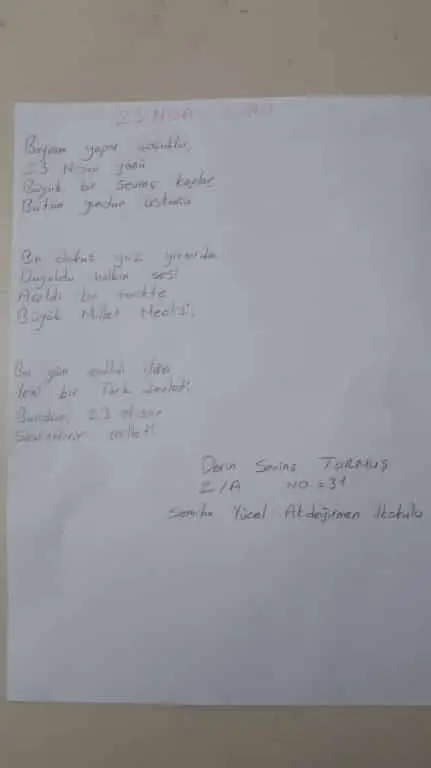 23 NİSAN
Bayram yapar çocuklar,
23 Nisan günü
Büyük bir sevinç kaplar
Bütün yurdun üstünü
Bin dokuz yüz yirmide
Duyuldu halkın sesi
Açıldı bu tarihte
Büyük Millet Meclisi.
Bu gün edildi ilan
Yeni bir Türk devleti
Bundan 23 Nisan
Sevindirir milleti
Derin Sevinç
2/A NO = 31
Semiha Yücel Akdeğirmen İlkokulu